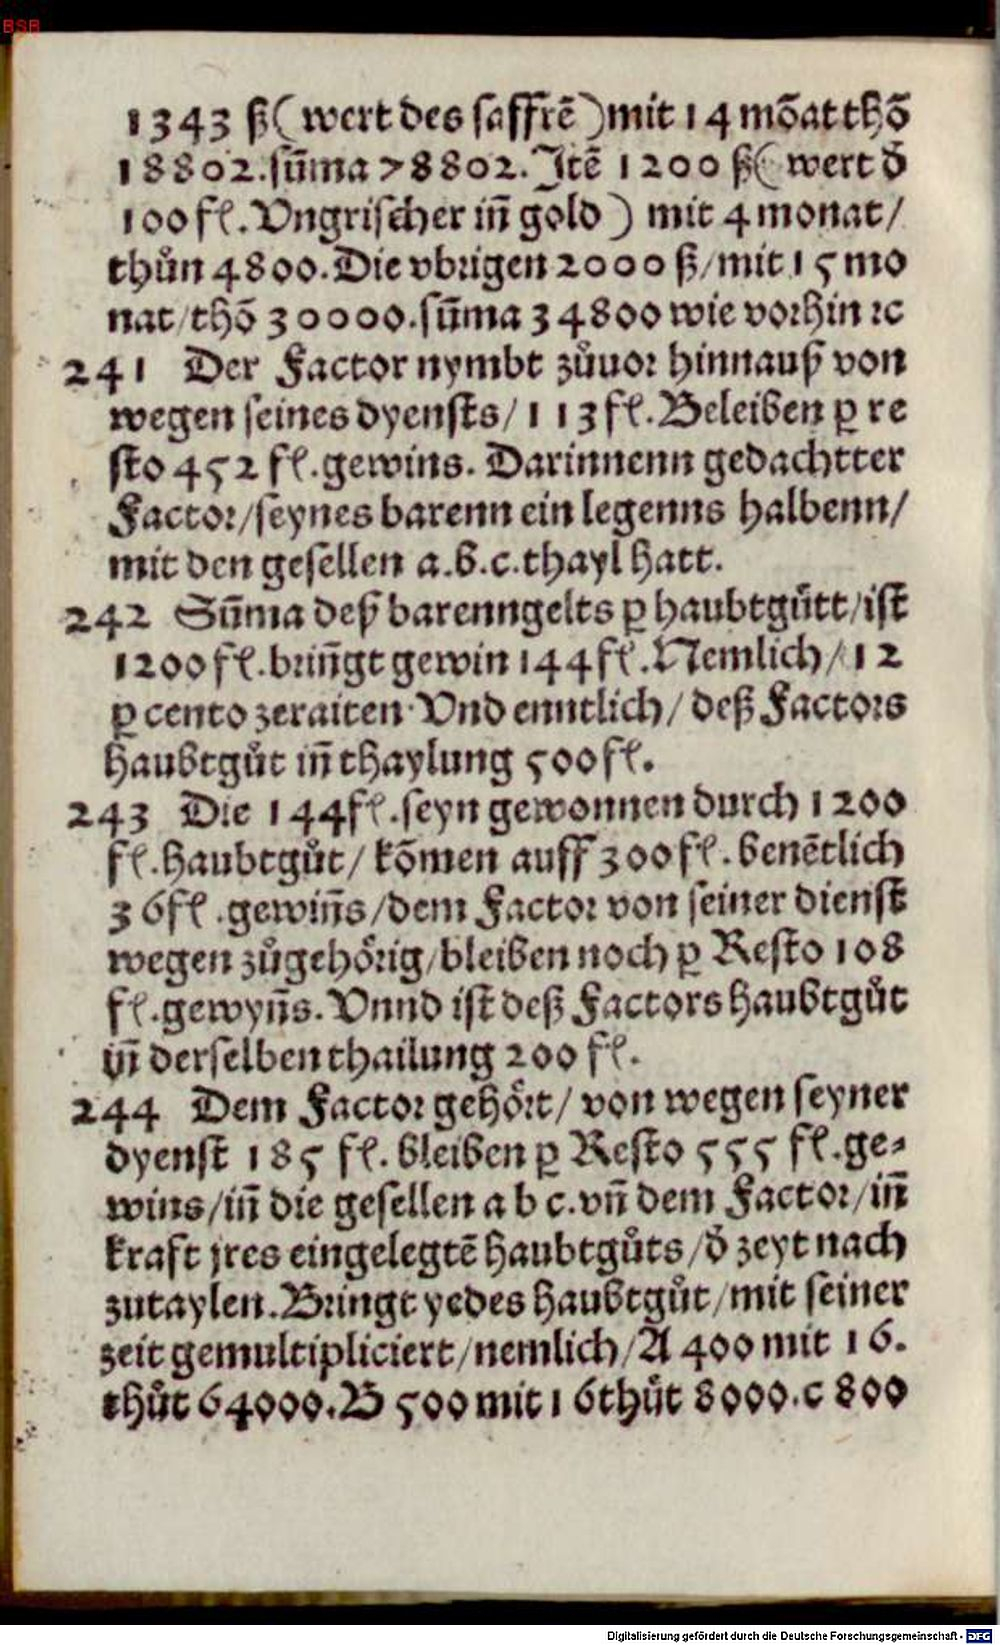 BSB
1343 ß(wert des saffrē)mit 14 mōat thō
18802.sūma 78802. Jtē 1200 ß(wert d̄
100 fl. Vngrischer in̄ gold) mit 4 monat/
thůn 4800. Die vbrigen 2000 ß/mit 15 mo
nat/thō 30000.sūma 34800 wie vorhin ꝛc
241 Der Factor nymbt zůuor hinnauß von
wegen seines dyensts/113 fl. Beleiben ꝑ re
sto 452 fl. gewins. Darinnenn gedachtter
Factor/seynes barenn ein legenns halbenn/
mit den gesellen a.b.c. thayl hatt.
242 Sūma deß barenngelts ꝑ haubtgůtt/ist
1200 fl. brin̄gt gewin 144 fl. Nemlich/12
ꝑ cento zeraiten. Vnd enntlich/deß Factors
haubtgůt in̄ thaylung 500 fl.
243 Die 144 fl. seyn gewonnen durch 1200
fl. haubtgůt/kōmen auff 300 fl. benētlich
36 fl. gewin̄s/dem Factor von seiner dienst
wegen zůgehörig/bleiben noch ꝑ Resto 108
fl. gewyn̄s. Vnnd ist deß Factors haubtgůt
in̄ derselben thailung 200 fl.
244 Dem Factor gehört/von wegen seyner
dyenst 185 fl. bleiben ꝑ Resto 555 fl. ge⸗
wins/in̄ die gesellen a b c. vn̄ dem Factor/in̄
kraft jres eingelegtē haubtgůts/d̄ zeyt nach
zutaylen. Bringt yedes haubtgůt/mit seiner
zeit gemultipliciert/nemlich/A 400 mit 16.
thůt 64000. B 500 mit 16 thůt 8000. c 800
Digitalisierung gefördert durch die Deutsche Forschungsgemeinschaft - DFG